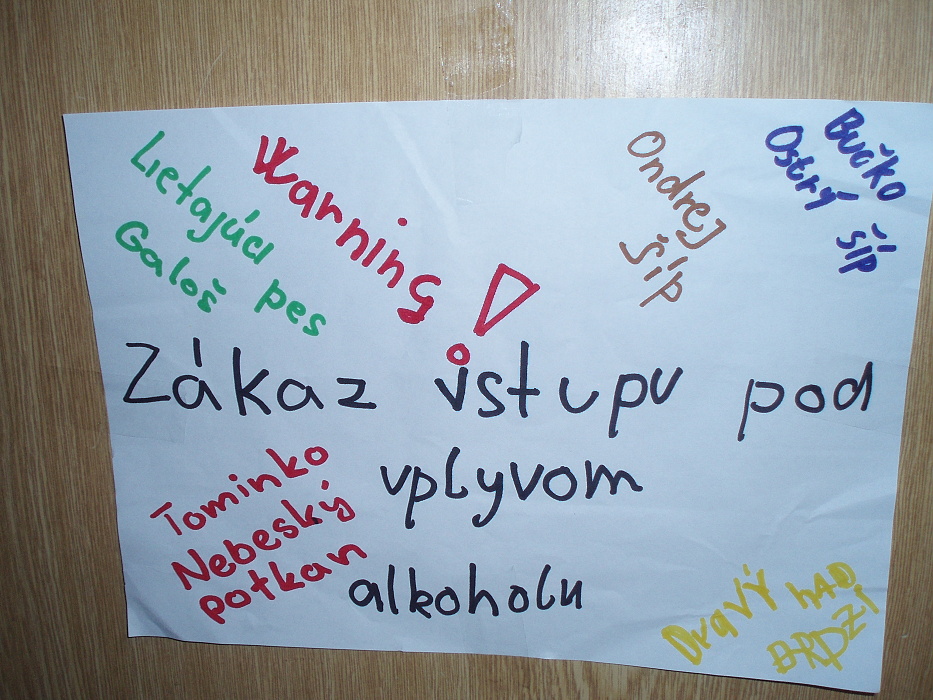 Lietajúci pes
Galoš
Warning!
Ondrej
Šíp
Bučko
Ostrý šíp
Zákaz vstupu pod
vplyvom
alkoholu
Tominko
Nebeský
potkan
Dravý had
BRDZI